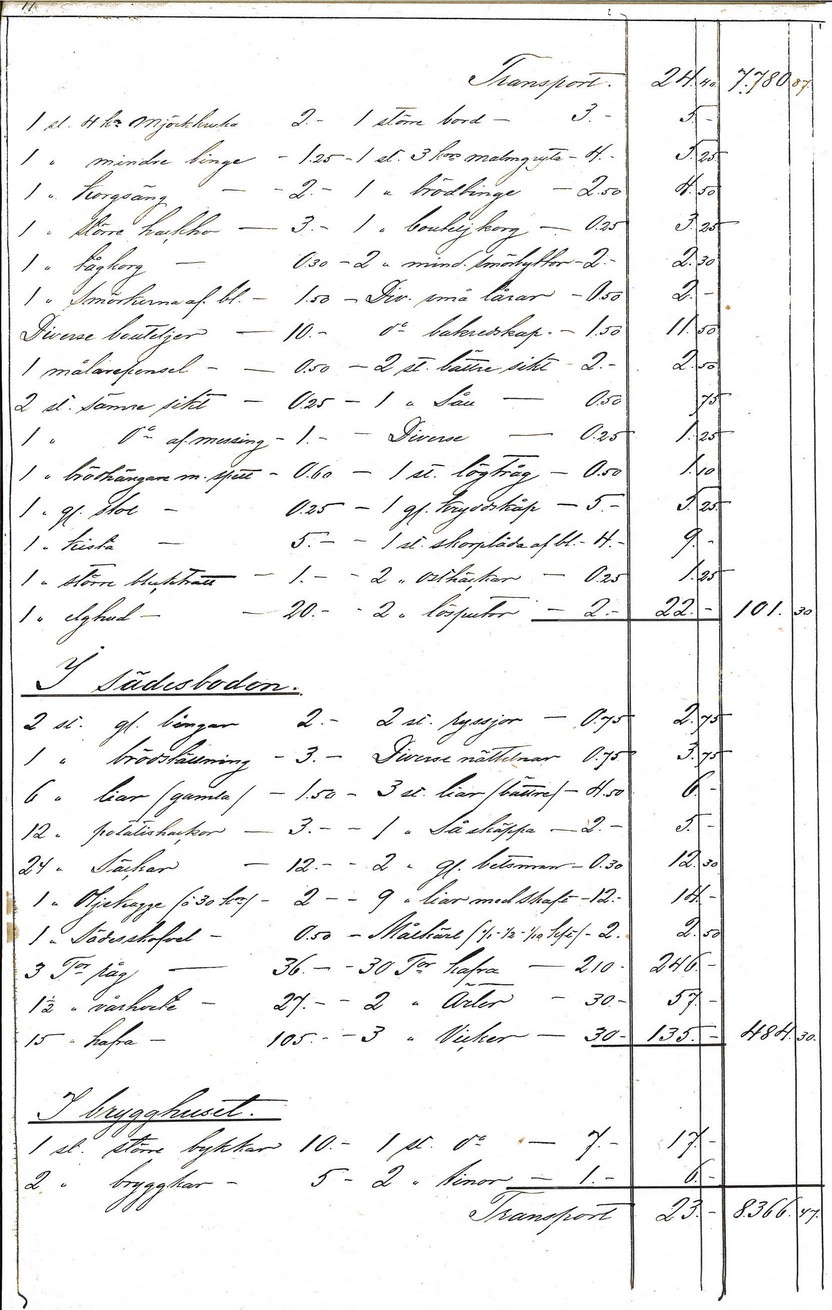 Transport. 24.40 7.780.87
1 st. 4 k:rs Mjölkkruka 2.- 1 större bord - 3.- 5-
1 " mindre binge - 1.25 - 1 st. 3 k:rs malmgryta - 4.- 5.25
1 " Korgsäng - - 2.- 1 " brödbinge - 2.50 4.50
1 " större hackho - 3.- 1 " boutelj korg - 0.25 3.25
1 " tågkorg - 0.30 - 2 " mind. smörbyttor - 2.- 2.30
1 " Smörkerna af bl. - 1.50 - Div. små lårar - 0.50 2.-
Diverse bouteljer - 10.- d:o bakredskap. - 1.50 11.50
1 målarepensel - - 0.50 - 2 st. bättre sikt - 2.- 2.50
2 st. sämre sikt - 0.25 - 1 " Såll - 0.50 75
1 " d:o af messing - 1.- - Diverse - 0.25 1.25
1 " brödhängare m. spett - 0.60 - 1 st. lögtråg - 0.50 1.10
1 " gl. stol - 0.25 - 1 gl. Kryddskåp - 5.- 5.25
1 " kista - 5.- - 1 st. skorplåda af bl. - 4.- 9.-
1 " större blecktratt - 1.- - 2 " osthäckar - 0.25 1.25
1 " elghud - - 20.- - 2 " lösputor - 2.- 22.- 101.30
I Sädesboden.
2 st. gl. bingar 2.- 2 st. ryssjor - 0.75 2.75
1 " brödställning - 3.- Diverse nättelnar 0.75 3.75
6 " liar /gamla/ - 1.50 - 3 st. liar /bättre/ - 4.50 6-
12 " potatishackor - 3.- - 1 " Såskäppa - 2.- 5.-
24 " Säckar - 12.- - 2 " gl. betsman - 0.30 12.30
1 " Oljekagge /à 30 k:r/ - 2 - - 9 " liar med skaft - 12.- 14.-
1 " Sädesskofvel - 0.50 - Målkärl /1/1-1/2-1/10 hkt/ - 2. 2.50
3 T:or råg - 36.- - 30 T:or hafra - 210- 246.-
1½ " vårhvete - 27.- - 2 " Ärter - 30- 57.-
15 " hafra - 105.- - 3 " Vicker - 30- 135.- 484.30.
I brygghuset.
1 st. större bykkar 10.- 1 st. d:o - 7.- 17.-
2 " bryggkar - 5 - 2 " tinor - 1.- 6.-
Transport 23.- 8.366.47.